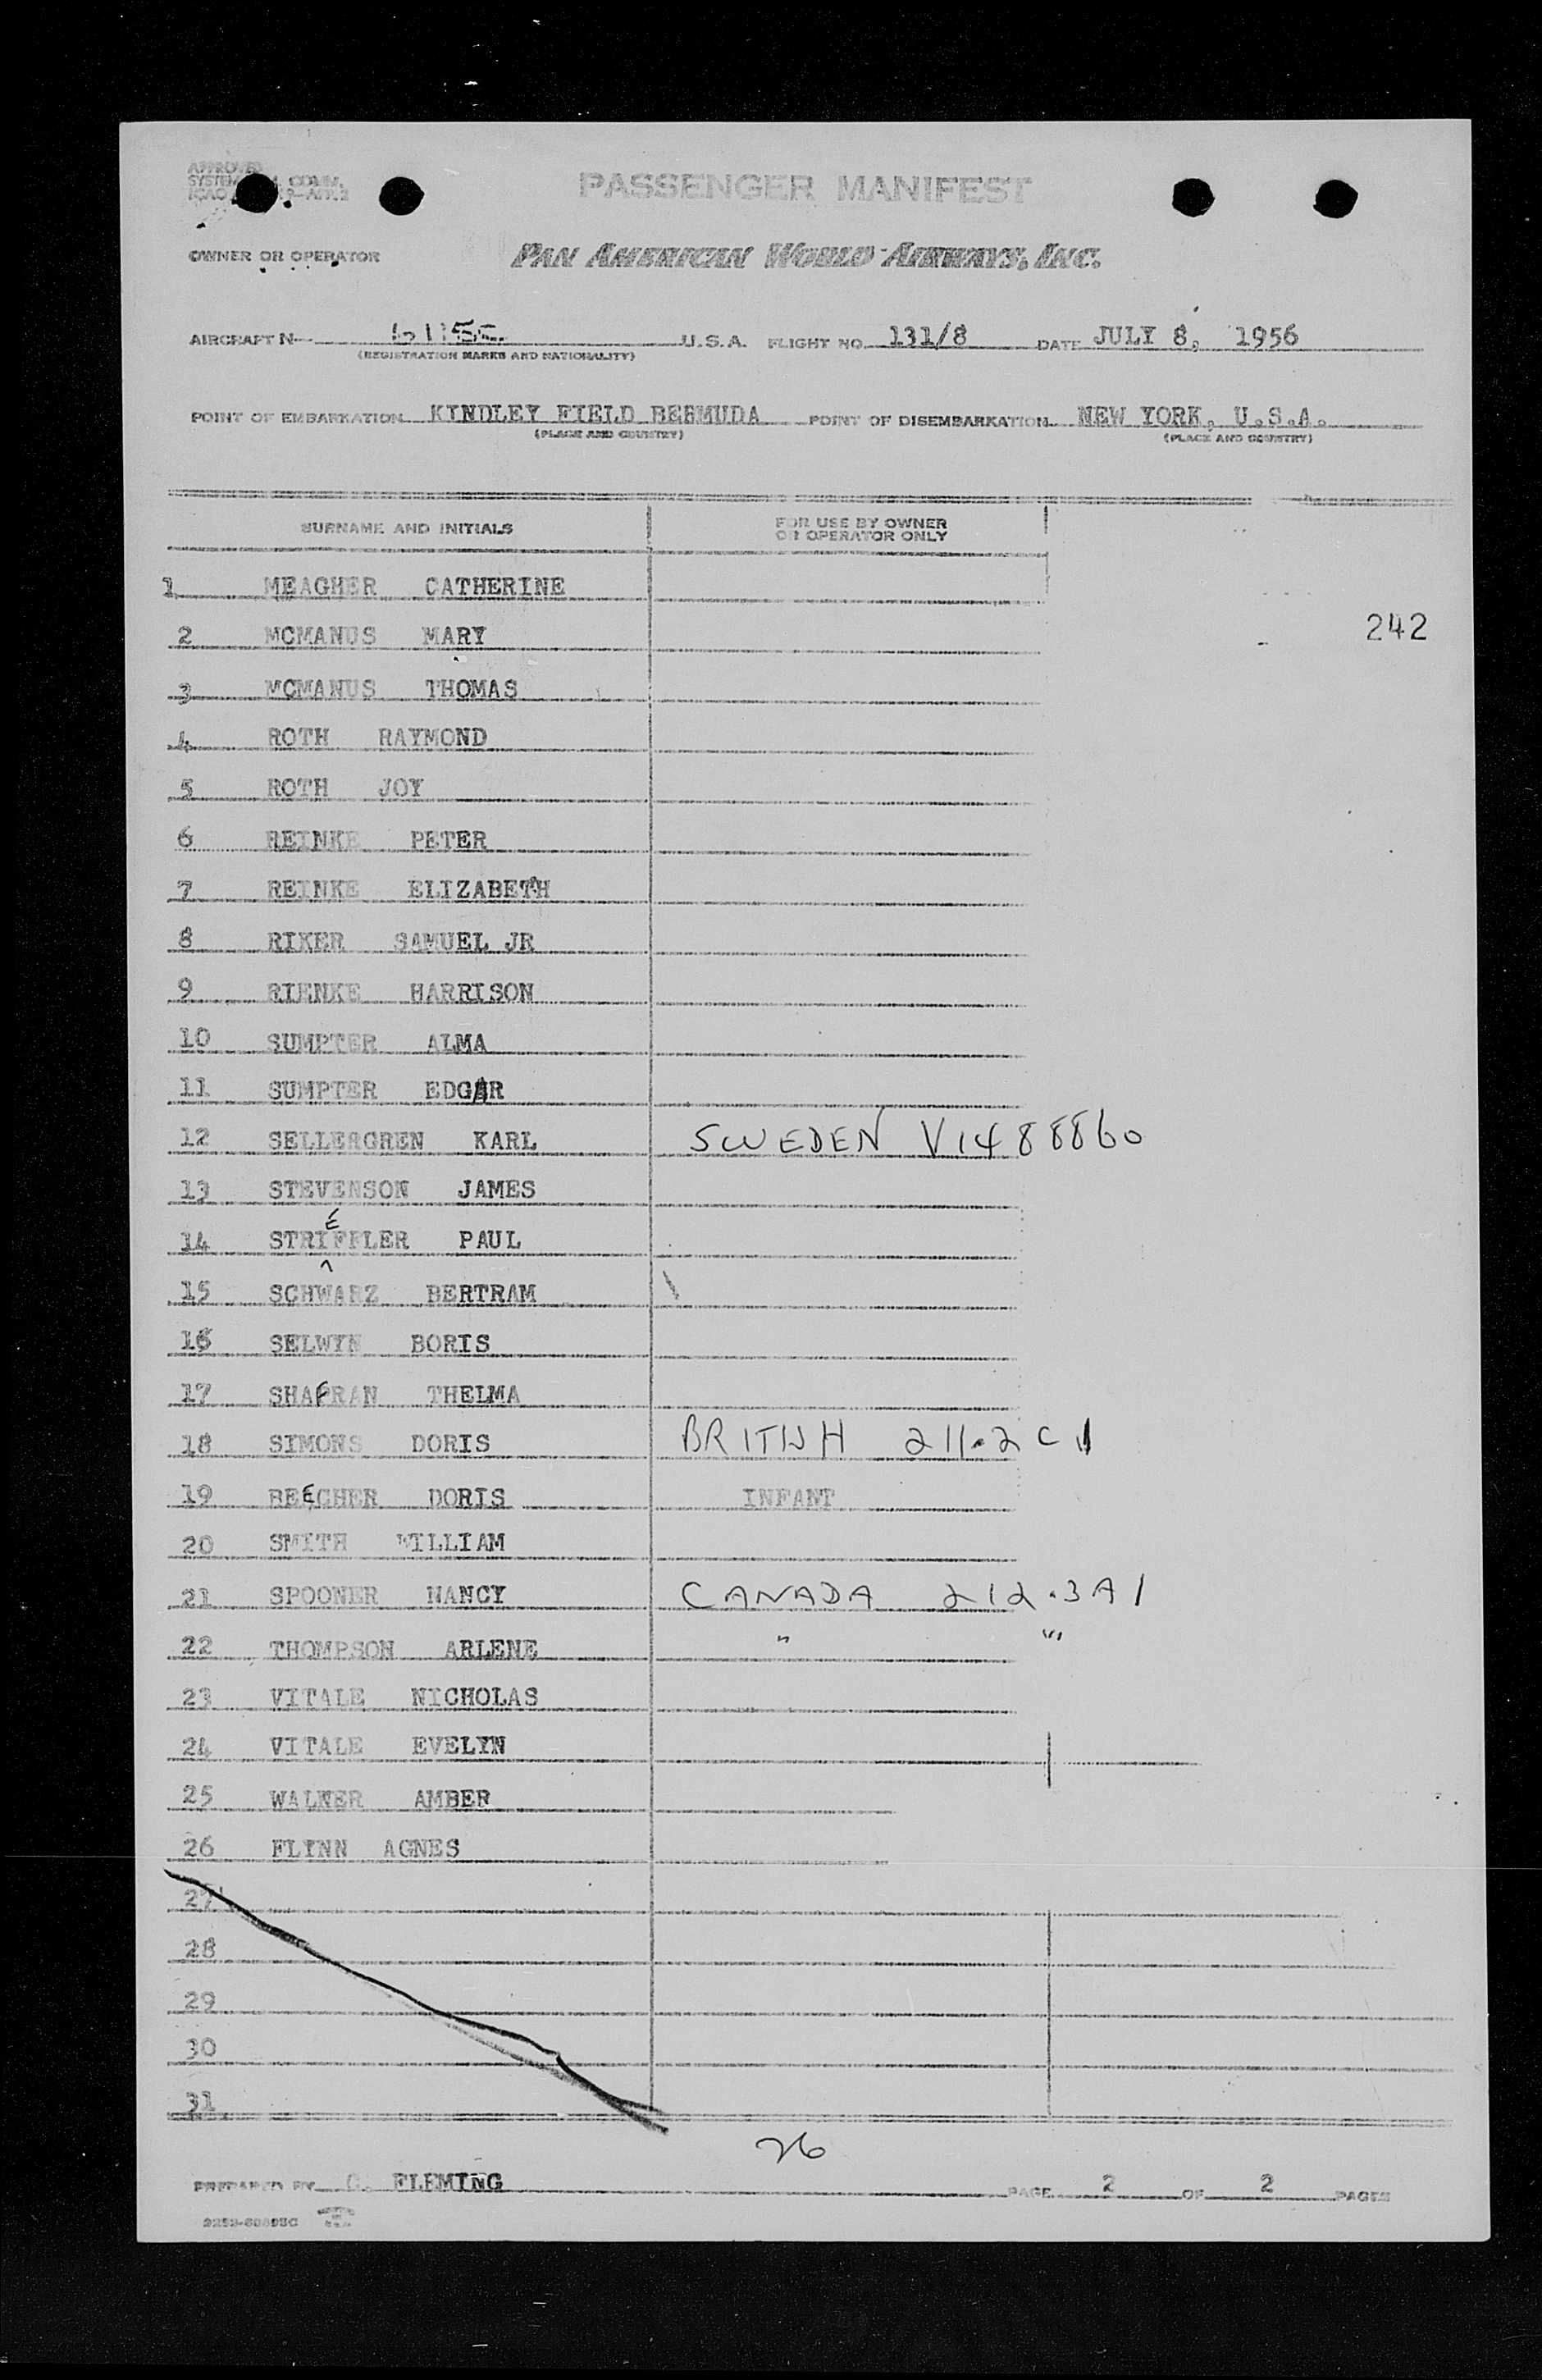 APPROVED
SYSTEM COMM.
ICAO 9-APP.2
PASSENGER MANIFEST
OWNER OR OPERATOR PAN AMERICAN WORLD AIRWAYS, INC.
AIRCRAFT N U.S.A. FLIGHT NO. 131/8 DATE JULY 8, 1956
(REGISTRATION MARKS AND NATIONALITY)
POINT OF EMBARKATION KINDLEY FIELD BERMUDA POINT OF DISEMBARKATION NEW YORK, U.S.A.
(PLACE AND COUNTRY) (PLACE AND COUNTRY)
SURNAME AND INITIALS FOR USE BY OWNER OR OPERATOR ONLY
1 MEAGHER CATHERINE
242
2 MCMANUS MARY
3 MCMANUS THOMAS
4 ROTH RAYMOND
5 ROTH JOY
6 REINKE PETER
7 REINKE ELIZABETH
8 RIKER SAMUEL JR
9 RIENKE HARRISON
10 SUMPTER ALMA
11 SUMPTER EDGAR
12 SELLERGREN KARL SWEDEN V1488860
13 STEVENSON JAMES
14 STRIEFFLER PAUL
15 SCHWARZ BERTRAM
16 SELWYN BORIS
17 SHAFRAN THELMA
18 SIMONS DORIS BRITISH 211.2C1
19 BEECHER DORIS INFANT
20 SMITH WILLIAM
21 SPOONER NANCY CANADA 212.3A1
22 THOMPSON ARLENE " "
23 VITALE NICHOLAS
24 VITALE EVELYN
25 WALKER AMBER
26 FLYNN AGNES
27
28
29
30
31
26
PREPARED BY C. FLEMING PAGE 2 OF 2 PAGES